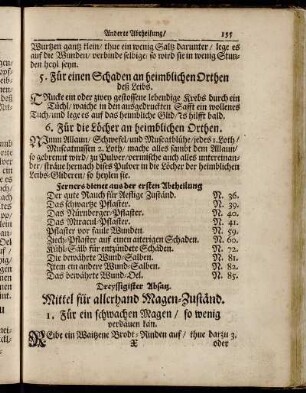 Anderte Abtheilung/ 155
Wurtzen gantz klein/ thue ein wenig Saltz darunter/ lege es
auf die Wunden/ verbinde selbige/ so wird sie in wenig Stun-
den heyl seyn.
5. Für einen Schaden an heimblichen Orthen
deß Leibs.
TRucke ein oder zwey gestossene lebendige Krebs durch ein
Tüchl/ waiche in den außgedruckten Safft ein wollenes
Tuch/ und lege es auf das heimbliche Glid/ es hilfft bald.
6. Für die Löcher an heimblichen Orthen.
NImm Allaun/ Schwefel/ und Muscatblühe/ jedes 1. Loth/
Muscatnussen 2. Loth/ mache alles sambt dem Allaun/
so gebrennt wird/ zu Pulver/ vermische auch alles untereinan-
der/ sträue hernach dises Pulver in die Löcher der heimblichen
Leibs-Glideren/ so heylen sie.
Ferners dienet aus der ersten Abtheilung
Der gute Rauch für Aeflige Zuständ. N. 36.
Das schwartze Pflaster. N. 39.
Das Nürnberger-Pflaster. N. 40.
Das Miracul-Pflaster. N. 41.
Pflaster vor faule Wunden. N. 59.
Ziech-Pflaster auf einen aiterigen Schaden. N. 60.
Kühl-Sälbl für entzündete Schäden. N. 72.
Die bewährte Wund-Salben. N. 81.
Item ein andere Wund-Salben. N. 82.
Das bewährte Wund-Oel. N. 85.
Dreyssigister Absatz.
Mittel für allerhand Magen-Zuständ.
1. Für ein schwachen Magen/ so wenig
verdäuen kan.
REibe ein Waitzene Brodt-Rinden auf/ thue darzu 3.
X oder